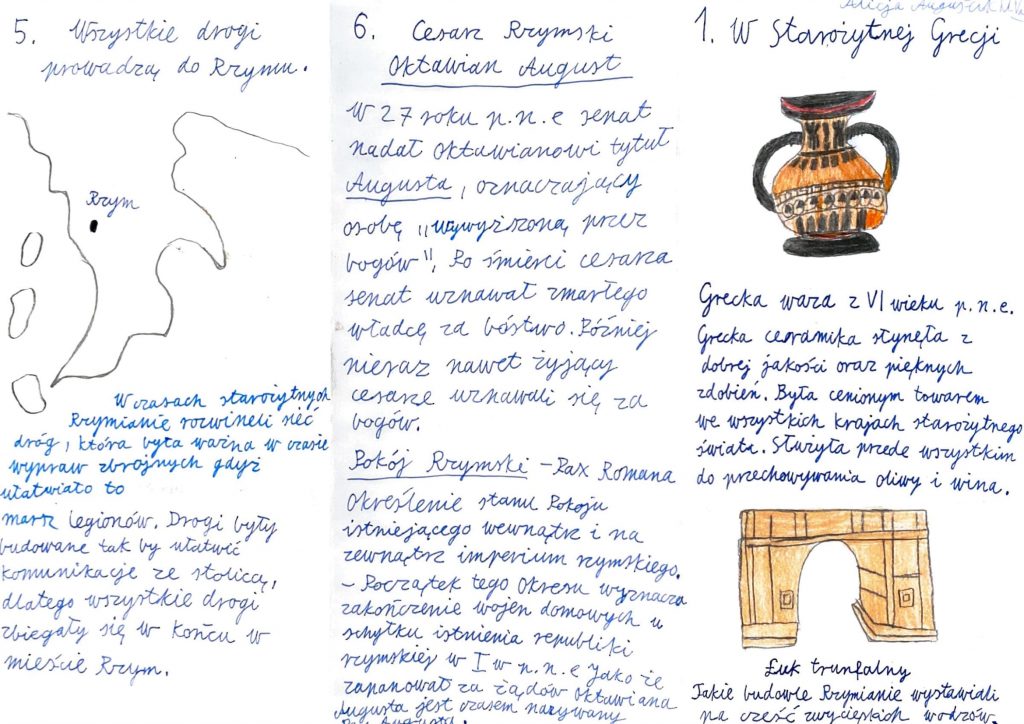 5. Wszystkie drogi
prowadzą do Rzymu.
Rzym
W czasach starożytnych
Rzymianie rozwineli sieć
dróg, która była ważna w czasie
wypraw zbrojnych gdyż
ułatwiało to
marsz legionów. Drogi były
budowane tak by ułatwić
komunikacje ze stolicą,
dlatego wszystkie drogi
zbiegały się w końcu w
mieście Rzym.
6. Cesarz Rzymski
Oktawian August
W 27 roku p.n.e senat
nadał Oktawianowi tytuł
Augusta, oznaczający
osobę „wywyższoną przez
bogów”. Po śmierci cesarza
senat uznawał zmarłego
władcę za bóstwo. Później
nieraz nawet żyjący
cesarze uznawali się za
bogów.
Pokój Rzymski – Pax Romana
Określenie stanu Pokoju
istniejącego wewnątrz i na
zewnątrz imperium rzymskiego.
– Początek tego okresu wyznacza
zakończenie wojen domowych u
schyłku istnienia republiki
rzymskiej w I w p.n.e Jako że
zapanował za żądów Oktawiana
Augusta jest czasem nazywany
Alicja
1. W Starożytnej Grecji
Grecka waza z VI wieku p.n.e.
Grecka ceramika słynęła z
dobrej jakości oraz pięknych
zdobień. Była cenionym towarem
we wszystkich krajach starożytnego
świata. Służyła przede wszystkim
do przechowywania oliwy i wina.
Łuk trunfalny
Takie budowle Rzymianie wystawiali
na cześć zwycięskich wodzów.